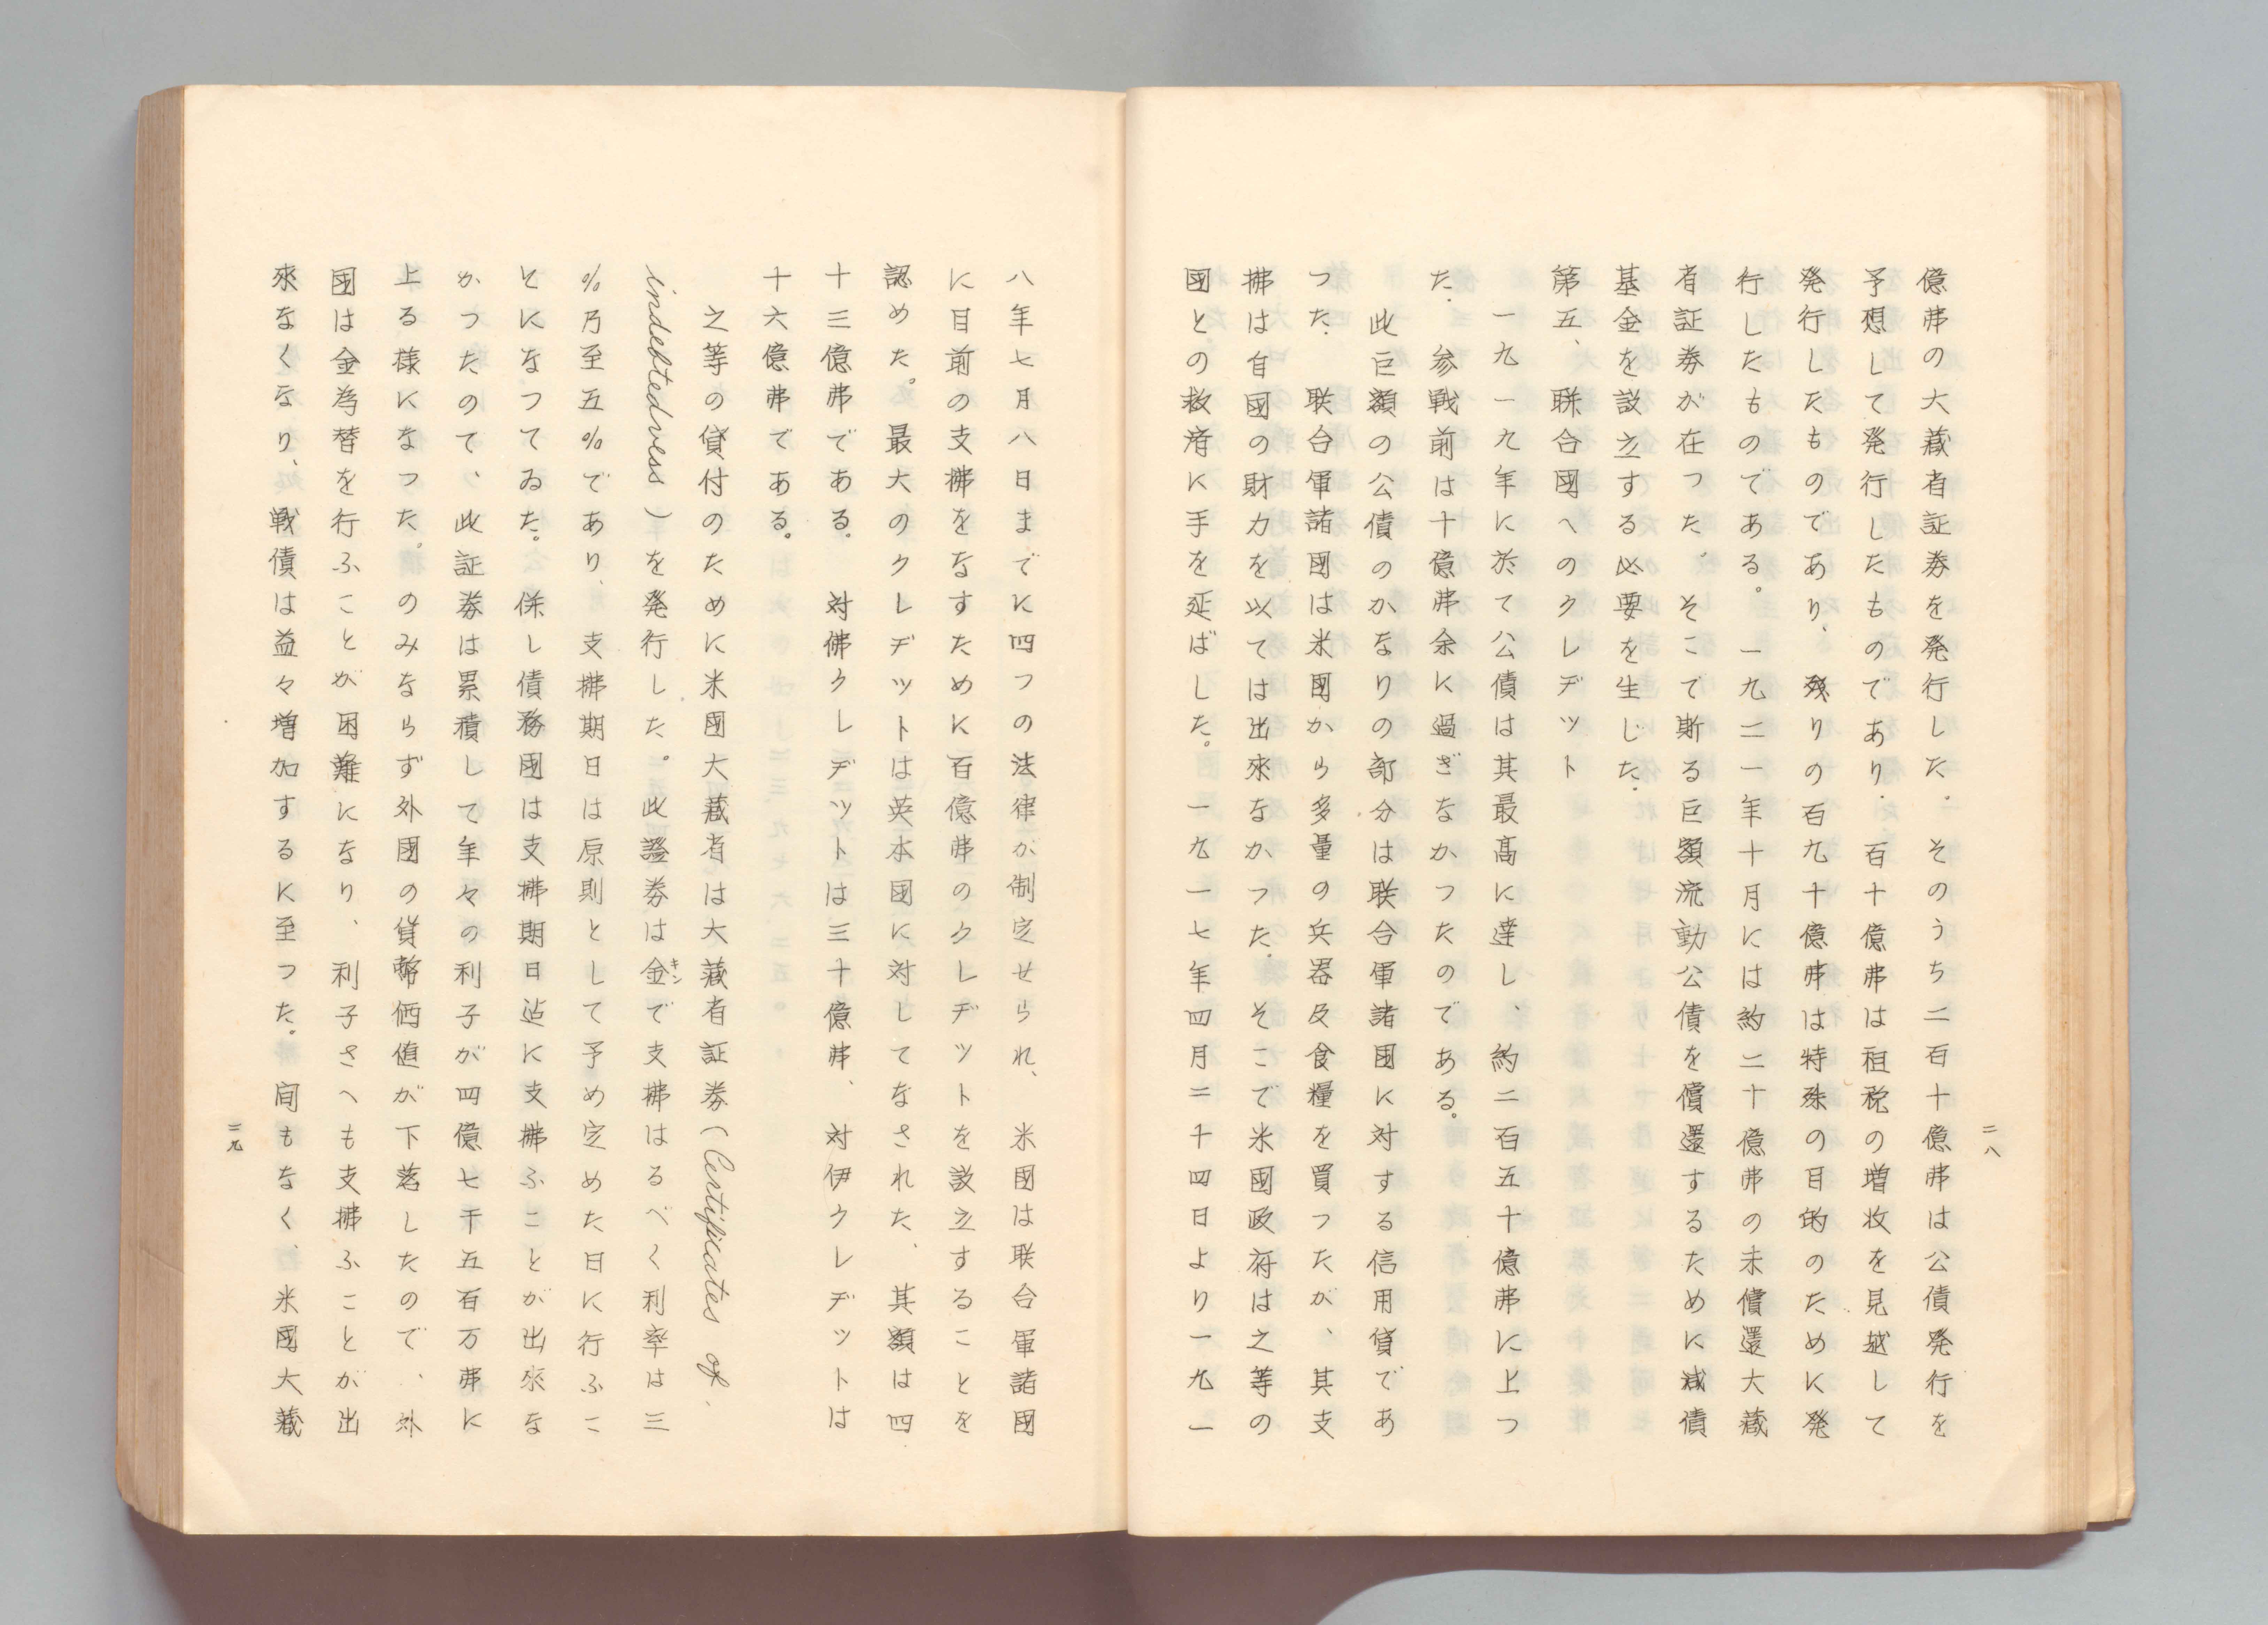 二八
億弗の大蔵省証券を発行した。そのうち二百十億弗は公債発行を
予想して発行したものであり、百十億弗は租税の増收を見越して
発行したものであり、残りの百九十億弗は特殊の目的のために発
行したものである。一九二一年十月には約二十億弗の未償還大蔵
省証券が在つた。そこで斯る巨額流動公債を償還するために減債
基金を設立する必要を生じた。
第五、聯合國へのクレヂット
一九一九年に於て公債は其最高に達し、約二百五十億弗に上つ
た。参戦前は十億弗余に過ぎなかつたのである。
此巨額の公債のかなりの部分は联合軍諸国に対する信用貸であ
つた。联合軍諸國は米國から多量の兵器及食糧を買つたが、其支
拂は自國の財力を以ては出來なかつた。そこで米國政府は之等の
國との救済に手を延ばした。一九一七年四月二十四日より一九一
八年七月八日までに四つの法律が制定せられ、米國は联合軍諸國
に目前の支拂をなすために百億弗のクレヂットを設立することを
認めた。最大のクレヂットは英本國に対してなされた、其額は四
十三億弗である。対佛クレヂットは三十億弗、対伊クレヂットは
十六億弗である。
之等の貸付のために米國大蔵省は大蔵省証券(Certificates of
indebtedness)を発行した。此證券は金キンで支拂はるべく利率は三
%乃至五%であり、支拂期日は原則として予め定めた日に行ふこ
とになつてゐた。併し債務國は支拂期日迄に支拂ふことが出來な
かつたので、此証券は累積して年々の利子が四億七千五百万弗に
上る様になつた。のみならず外國の貨幣価値が下落したので、外
國は金為替を行ふことが困難になり、利子さへも支拂ふことが出
來なくなり、戦債は益々増加するに至つた。间もなく、米國大蔵
二九